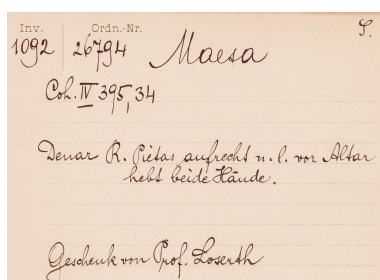 Inv. Ordn.-Nr. S.
1092 26794 Maesa
Coh. IV 395,34
Denar R. Pietas aufrecht n. l. vor Altar
hebt beide Hände.
Geschenk von Prof. Loserth